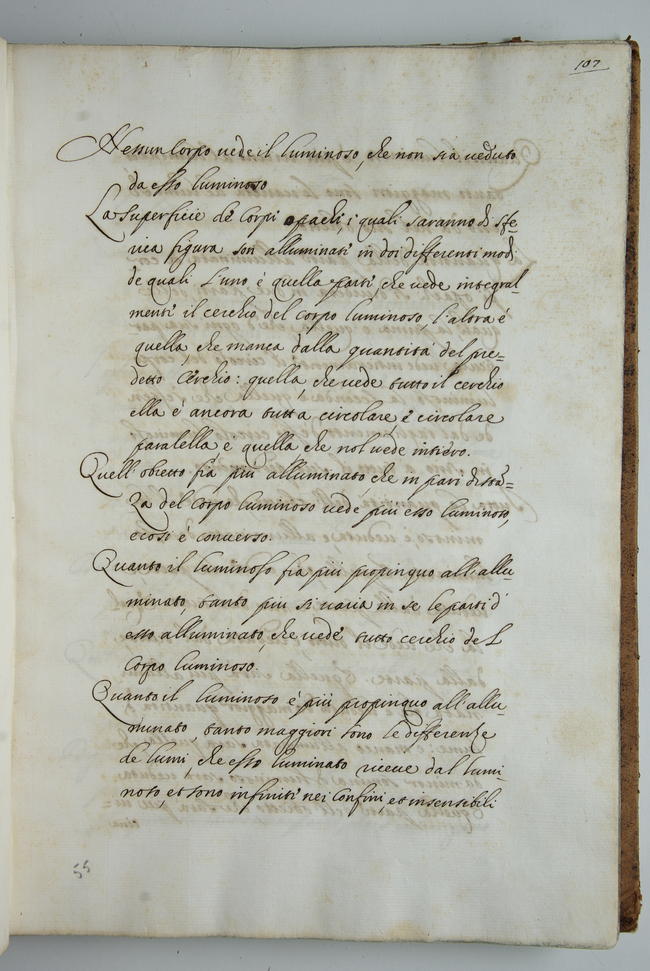 107
Nessun Corpo uede il luminoso, che non sia ueduto
da esso luminoso
La superficie dè Corpi opachi, i quali saranno di sfe-
rica figura son alluminati in doi differenti modi
de quali l'uno è quella parti, che uede integral-
menti il cerchio del corpo luminoso, l'altra è
quella, che manca dalla quantità del pre-
detto Cerchio: quella, che uede tutto il cerchio
ella è ancora tutta circolare, è circolare
paralella, è quella che nol uede intiero.
Quell'obietto fia più alluminato, che in pari dista-
za del corpo luminoso uede più esso luminoso,
e così è conuerso.
Quanto il luminoso fia più propinquo all'allu-
minato, tanto più si uaria in se le parti d'
esso alluminato, che uede tutto cerchio del
Corpo luminoso.
Quanto il luminoso è più propinquo all'allu-
minato, tanto maggiori sono le differenze
de lumi, che esso luminato riceue dal lumi-
noso, et sono infiniti nei Confini, et insensibili
55